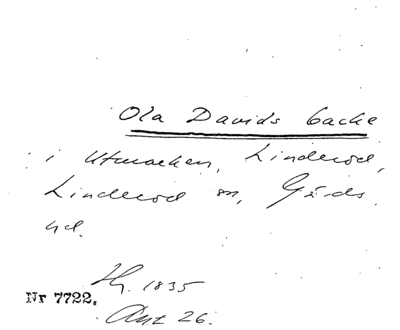 Ola Davids backe
i Utmarken, Linderöd,
Linderöd sn, Gärds
hd.
Hy. 1835
Nr 7722.
Ant 26.